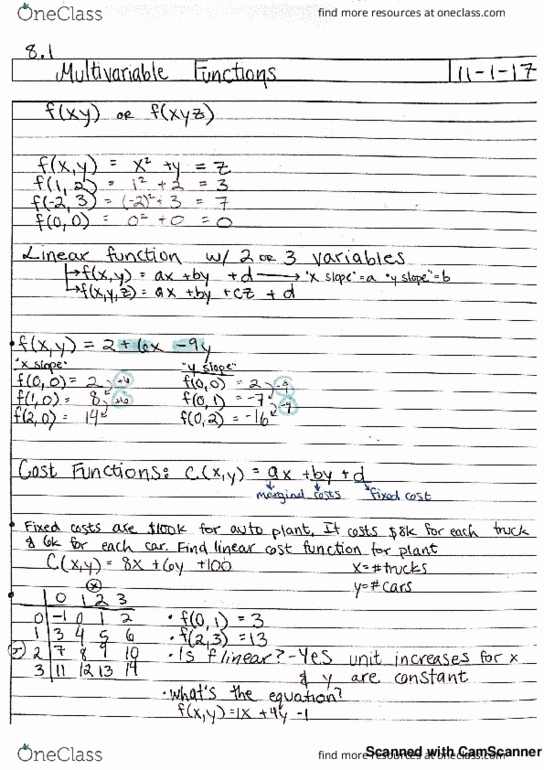 OneClass
find more resources at oneclass.com
8.1
Multivariable Functions 11-1-17
f(xy) or f(xyz)
f(x,y) = x² + y = z
f(1,2) = 1² + 2 = 3
f(-2,3) = (-2)² + 3 = 7
f(0,0) = 0² + 0 = 0
Linear function w/ 2 or 3 variables
↳f(x,y) = ax + by + d → "x slope"=a "y slope"=b
↳f(x,y,z) = ax + by + cz + d
• f(x,y) = 2 + 6x - 9y
"x slope" "y slope"
f(0,0) = 2 +6 f(0,0) = 2 -9
f(1,0) = 8 +6 f(0,1) = -7 -9
f(2,0) = 14 f(0,2) = -16
Cost Functions: C(x,y) = ax + by + d
marginal costs fixed cost
• Fixed costs are $100k for auto plant, It costs $8k for each truck
& 6k for each car. Find linear cost function for plant
C(x,y) = 8x + 6y + 100 x=#trucks
y=#cars
x
0 1 2 3
0 -1 0 1 2 • f(0,1) = 3
1 3 4 5 6 • f(2,3) = 13
2 7 8 9 10 • Is f linear? - Yes unit increases for x
3 11 12 13 14 & y are constant
• what's the equation?
f(x,y) = 1x + 4y - 1
OneClass
find more resources at oneclass.com
Scanned with CamScanner